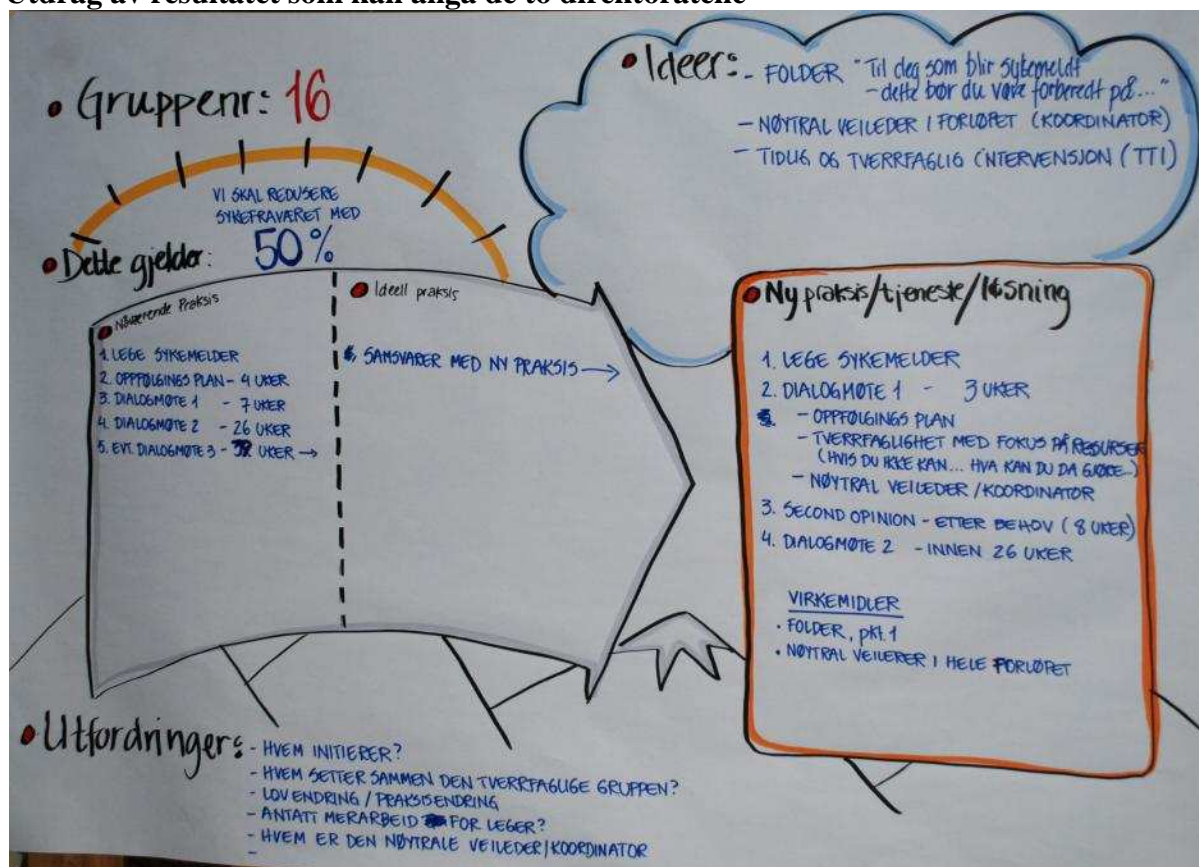 Utdrag av resultatet som kan angå de to direktoratene
• Gruppenr: 16
VI SKAL REDUSERE
SYKEFRAVÆRET MED
50%
• Dette gjelder:
• Nåværende Praksis
1. LEGE SYKEMELDER
2. OPPFØLGINGS PLAN - 4 UKER
3. DIALOGMØTE 1 - 7 UKER
4. DIALOGMØTE 2 - 26 UKER
5. EVT. DIALOGMØTE 3 - UKER →
• Ideell praksis
SAMSVARER MED NY PRAKSIS →
• Ideer:
- FOLDER "Til deg som blir sykemeldt
- dette bør du være forberedt på..."
- NØYTRAL VEILEDER I FORLØPET (KOORDINATOR)
- TIDLIG OG TVERRFAGLIG INTERVENSJON (TTI)
• Ny praksis/tjeneste/løsning
1. LEGE SYKEMELDER
2. DIALOGMØTE 1 - 3 UKER
- OPPFØLGINGS PLAN
- TVERRFAGLIGHET MED FOKUS PÅ RESURSER
(HVIS DU IKKE KAN... HVA KAN DU DA GJØRE...)
- NØYTRAL VEILEDER/KOORDINATOR
3. SECOND OPINION - ETTER BEHOV (8 UKER)
4. DIALOGMØTE 2 - INNEN 26 UKER
VIRKEMIDLER
• FOLDER, pkt. 1
• NØYTRAL VEILERER I HELE FORLØPET
• Utfordringer:
- HVEM INITIERER?
- HVEM SETTER SAMMEN DEN TVERRFAGLIGE GRUPPEN?
- LOVENDRING / PRAKSISENDRING
- ANTATT MERARBEID FOR LEGER?
- HVEM ER DEN NØYTRALE VEILEDER/KOORDINATOR
-